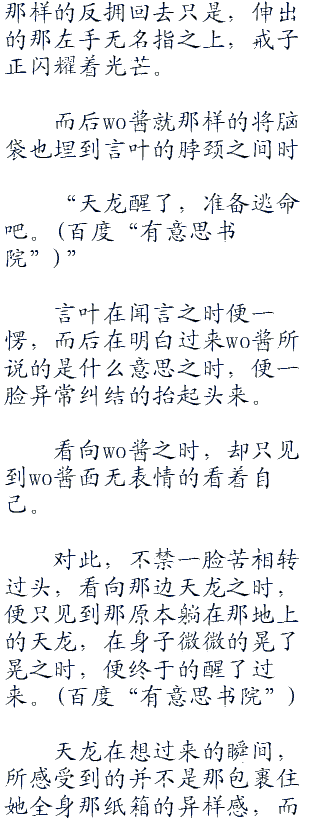 那样的反拥回去只是，伸出
的那左手无名指之上，戒子
正闪耀着光芒。
而后wo酱就那样的将脑
袋也埋到言叶的脖颈之间时
“天龙醒了，准备逃命
吧。(百度“有意思书
院”)”
言叶在闻言之时便一
愣，而后在明白过来wo酱所
说的是什么意思之时，便一
脸异常纠结的抬起头来。
看向wo酱之时，却只见
到wo酱面无表情的看着自
己。
对此，不禁一脸苦相转
过头，看向那边天龙之时，
便只见到那原本躺在那地上
的天龙，在身子微微的晃了
晃之时，便终于的醒了过
来。(百度“有意思书院”)
天龙在想过来的瞬间，
所感受到的并不是那包裹住
她全身那纸箱的异样感，而